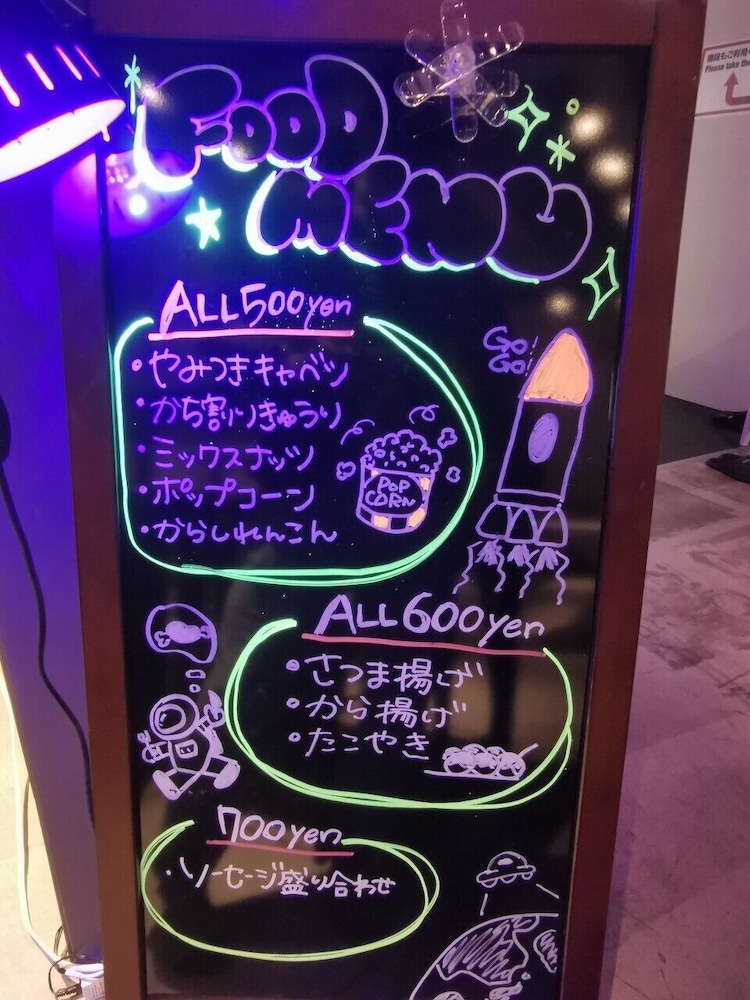 FOOD
MENU
ALL500yen
・やみつきキャベツ
・かち割りきゅうり
・ミックスナッツ
・ポップコーン
・からしれんこん
POP
CORN
GO!
GO!
ALL600yen
・さつま揚げ
・から揚げ
・たこやき
700yen
・ソーセージ盛り合わせ
階段もご利用
Please take the